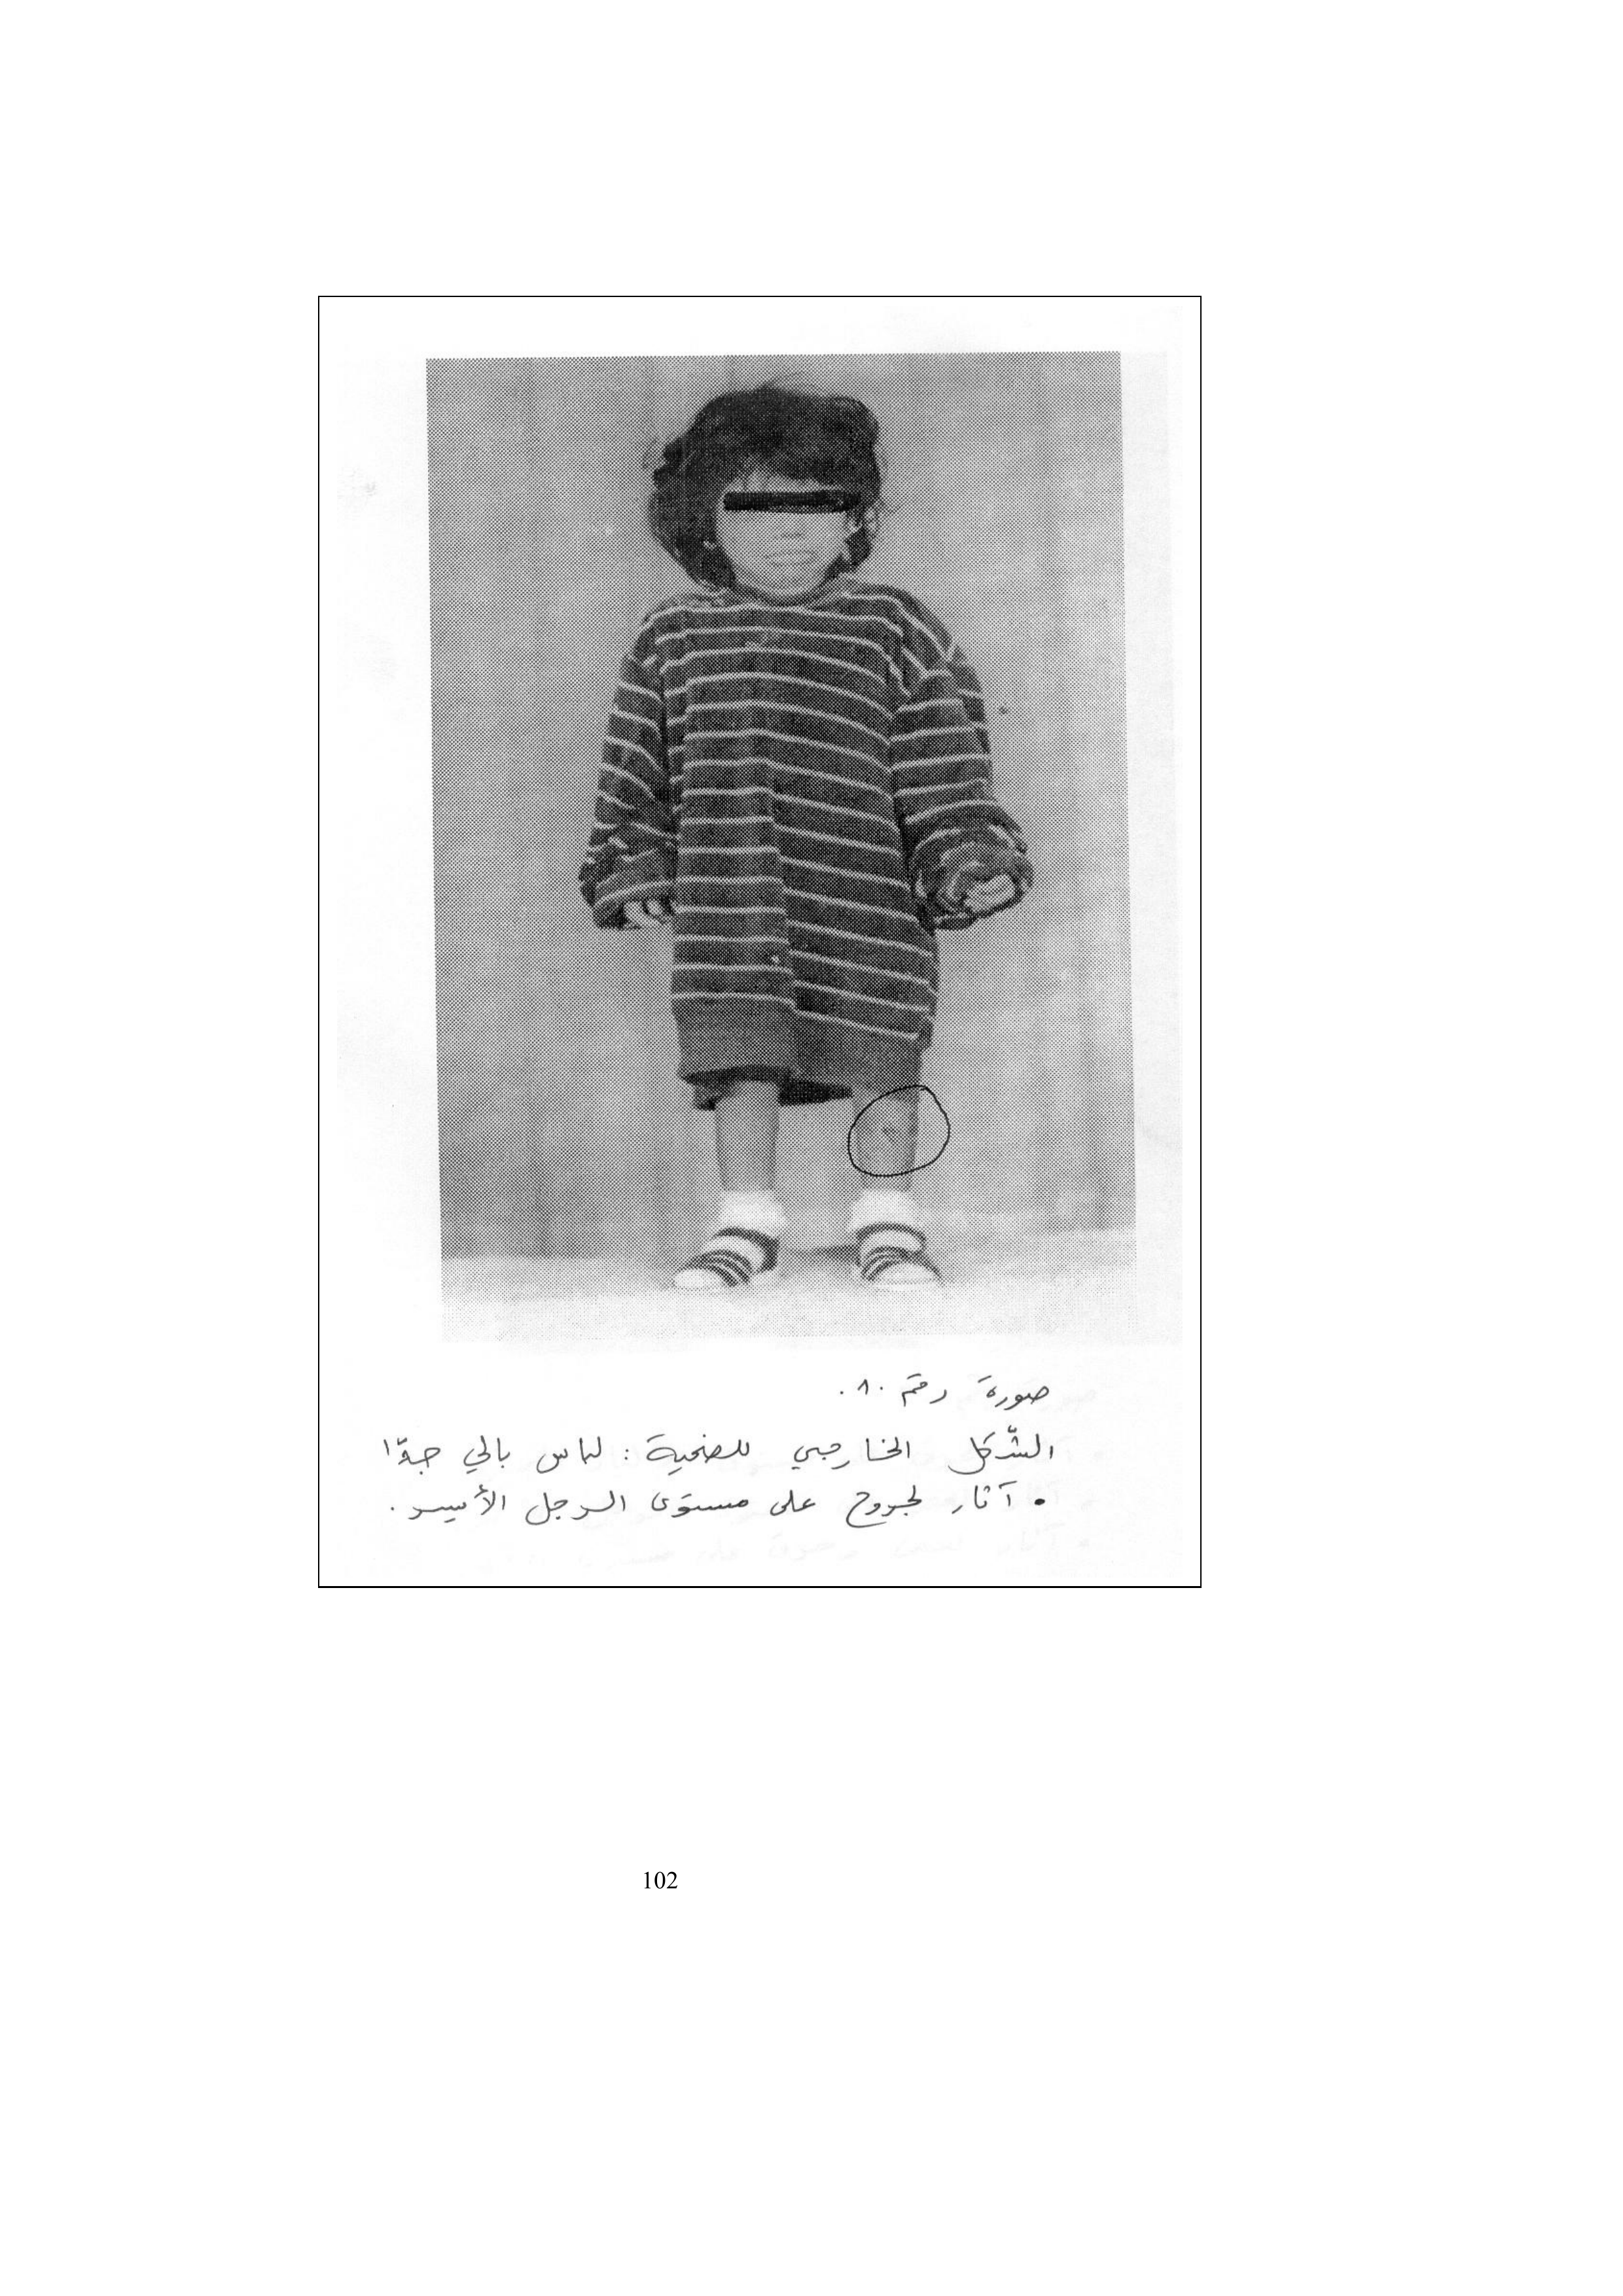 صورة رقم ٠٨.
الشّكل الخارجي للضحية : لباس بالي جدّا
• آثار لجروح على مستوى الرجل الأيسر .
102